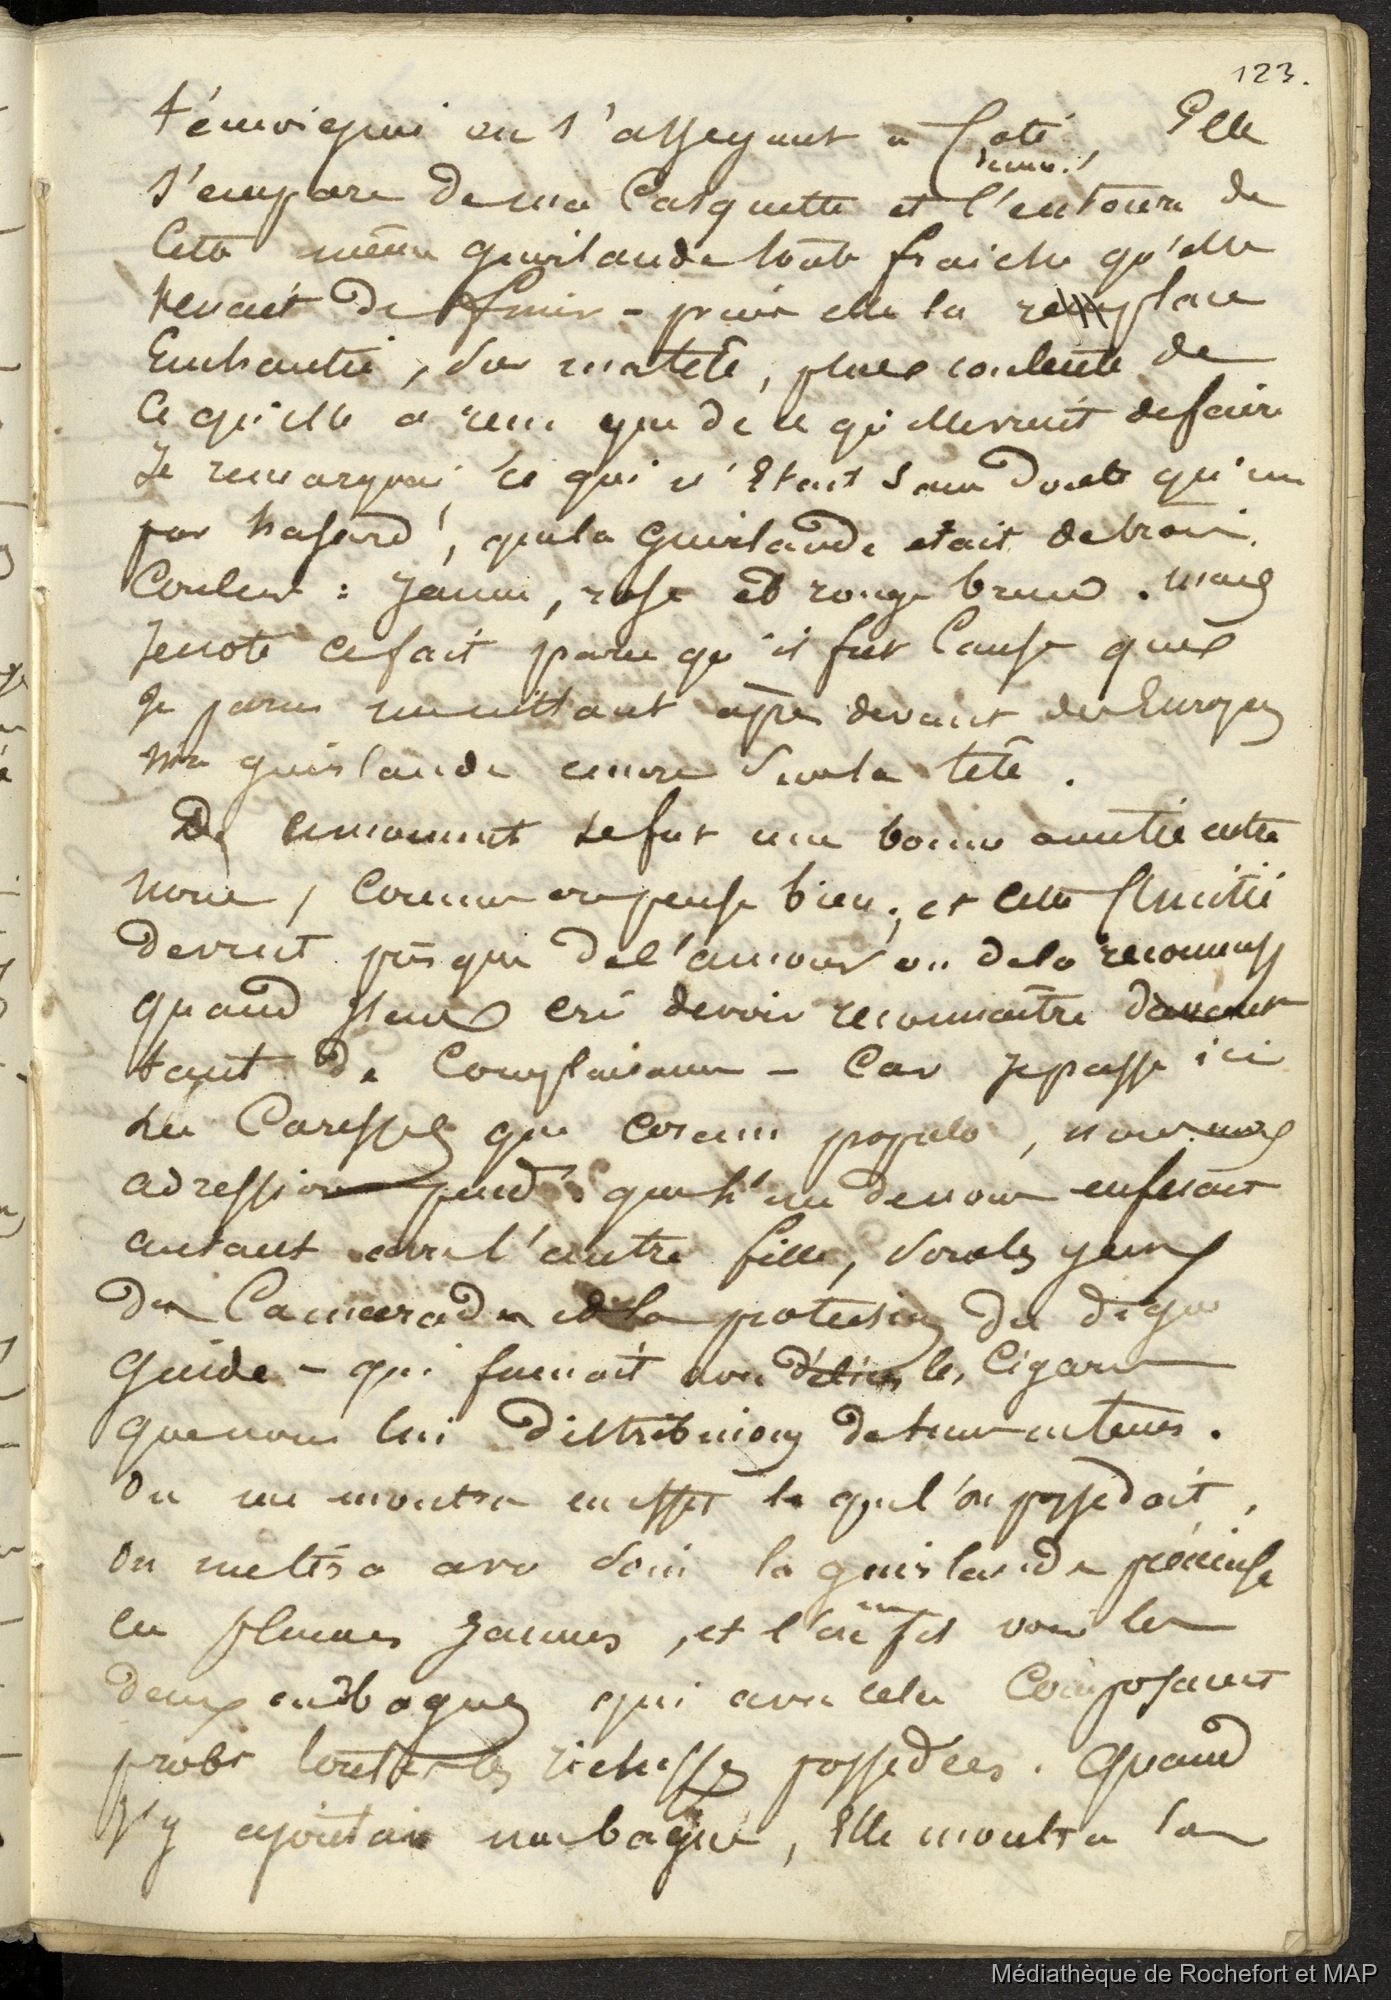 123.
témoignai en s'asseyant à Coté Elle
s'empare de ma Casquette et l'entoure de
Cette même guirlande toute fraiche qu'elle
venait de finir – puis elle la replace
Enchantée, sur ma tête, plus contente de
Ce qu'elle a reçu que de ce qu'elle venait de faire
Je remarquai, ce qui n'Etait sans doute qu'un
pur hasard, que la guirlande etait de trois
Couleurs : Jaune, rose et rouge brun. Mais
Je note ce fait parce qu'il fut Cause que
Je parus un instant après devant des Europens
ma guirlande encore sur la tête.
De ce moment ce fut une bonne amitié entre
nous, Comme on pense bien, et cette Amitié
devint presque de l'amour ou de la reconnaiss
quand Je crû devoir reconnaître
tant de Complaisance – Car Je passe ici
les Caresses que coram populo, nous nous
adressions pend. que l'un de nous en faisait
autant avec l'autre fille, sous les yeux
du Camarade et la protection du digne
Guide – qui fumait avec délices les Cigares
que nous lui distribuions de tems en tems.
On me montra en effet ce que l'on possedait,
On me livra avec soin la guirlande précieuse
en plumes Jaunes, et l'on me fit voir les
deux bagues qui avec cela Composaient
probt toutes les richesses possedées. Quand
J'y ajoutai une bague, Elle montra la
Médiathèque de Rochefort et MAP